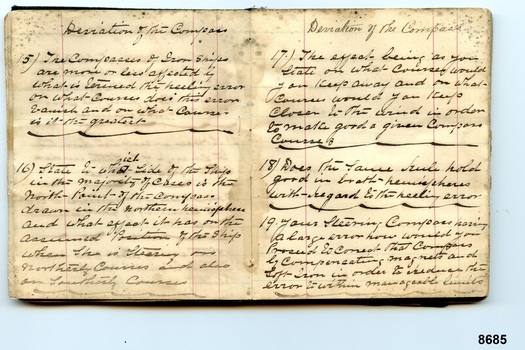 Deviation of the Compass
15) The Compasses of Iron Ships
are more or less affected by
what is termed the heeling error
on what Courses does this error
vanish and on what Courses
is it the greatest
16) State to which Side of the Ship
in the majority of Cases is the
North Point of the Compass
drawn in the Northern hemisphere
and what effect it has on the
assumed Position of the Ship
when She is Steering on
Northerly Courses and also
on Southerly Courses
Deviation of the Compass
17) The effect being as you
State on what Courses would
you keep away and on what
Courses would you keep
Closer to the wind in order
to make good a given Compass
Course
18) Does the Same Rule hold
good in both hemispheres
with regard to the heeling error
19. Your Steering Compass having
a large error how would you
Proceed to Correct that Compass
by Compensating magnets and
Soft Iron in order to reduce the
error to within manageable limits
8685